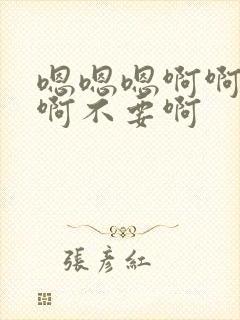 嗯嗯嗯啊啊
啊不要啊
張彦紅